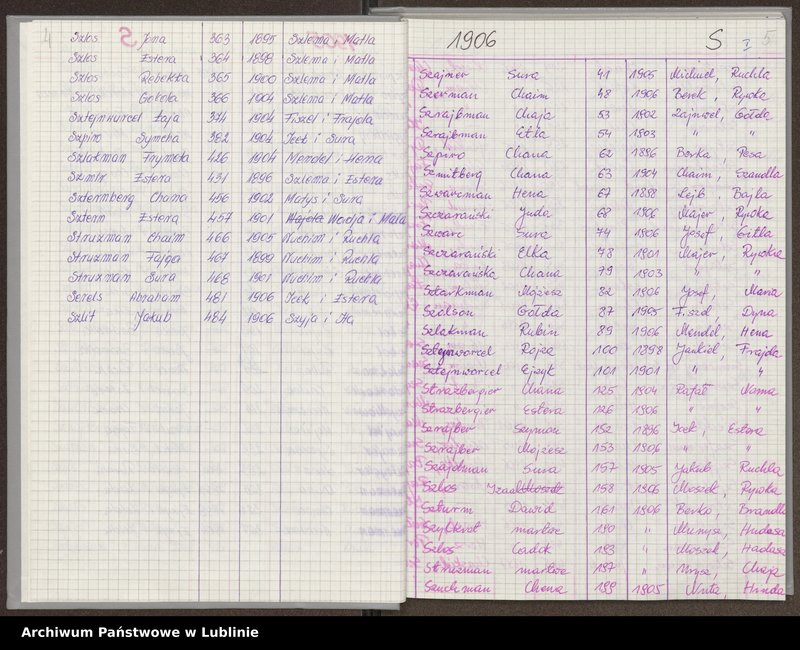 4
Szlos Jona 363 1895 Szlema i Matla
Szlos Estera 364 1898 Szlema i Matla
Szlos Rebekka 365 1900 Szlema i Matla
Szlos Gołda 366 1904 Szlema i Matla
Sztejnwurcel Łaja 374 1904 Fiszel i Frajda
Szpiro Symcha 382 1904 Icek i Sura
Szlakman Frymeta 426 1904 Mendel i Hena
Szmilr Estera 431 1896 Szlema i Estera
Szternberg Chana 456 1902 Matys i Sura
Szterm Estera 457 1901 Wodja i Mala
Struzman Chaim 466 1905 Nuchim i Ruchla
Struzman Fajga 467 1899 Nuchim i Ruchla
Struzman Sura 468 1901 Nuchim i Ruchla
Serels Abraham 481 1906 Icek i Estera
Szlif Jakub 484 1906 Szyja i Ita
1906 S I 5
Szajner Sura 41 1905 Michuel, Ruchla
Szerman Chaim 48 1906 Berek, Rywka
Szrajbman Chaja 53 1902 Zajnwel, Gołda
Szrajbman Etka 54 1903 " "
Szpiro Chana 62 1896 Berka, Pesa
Szmitberg Chana 63 1904 Chaim, Szandla
Szwarcman Hena 67 1898 Lejb, Bajla
Szczarański Juda 68 1906 Majer, Rywka
Szwarc Sura 74 1906 Josef, Gitla
Szczarański Elka 78 1901 Majer, Rywka
Szczarańska Chana 79 1903 " "
Sztarkman Mojżesz 82 1906 Josef, Maria
Szolson Gołda 87 1905 Fiszel, Dyna
Szlakman Rubin 89 1906 Mendel, Hena
Sztejnworcel Rojza 100 1898 Jankiel, Frajda
Sztejnworcel Ejzyk 101 1901 " "
Strazbergier Chana 125 1904 Rafał Noma
Strazbergier Estera 126 1906 " "
Szrajber Szymon 152 1896 Icek, Estera
Szrajber Mojżesz 153 1906 " "
Szajdman Sura 157 1905 Jakub Ruchla
Szlos Izrael 158 1906 Moszek, Rywka
Szturm Dawid 161 1906 Berko, Brandla
Szylkrot martwe 190 " Hudasa
Szlos Cadek 193 " Moszek, Hadasa
Struzman martwe 197 " Chaja
Szuchman Chena 199 1905 Nuta, Hinda
Archiwum Państwowe w Lublinie